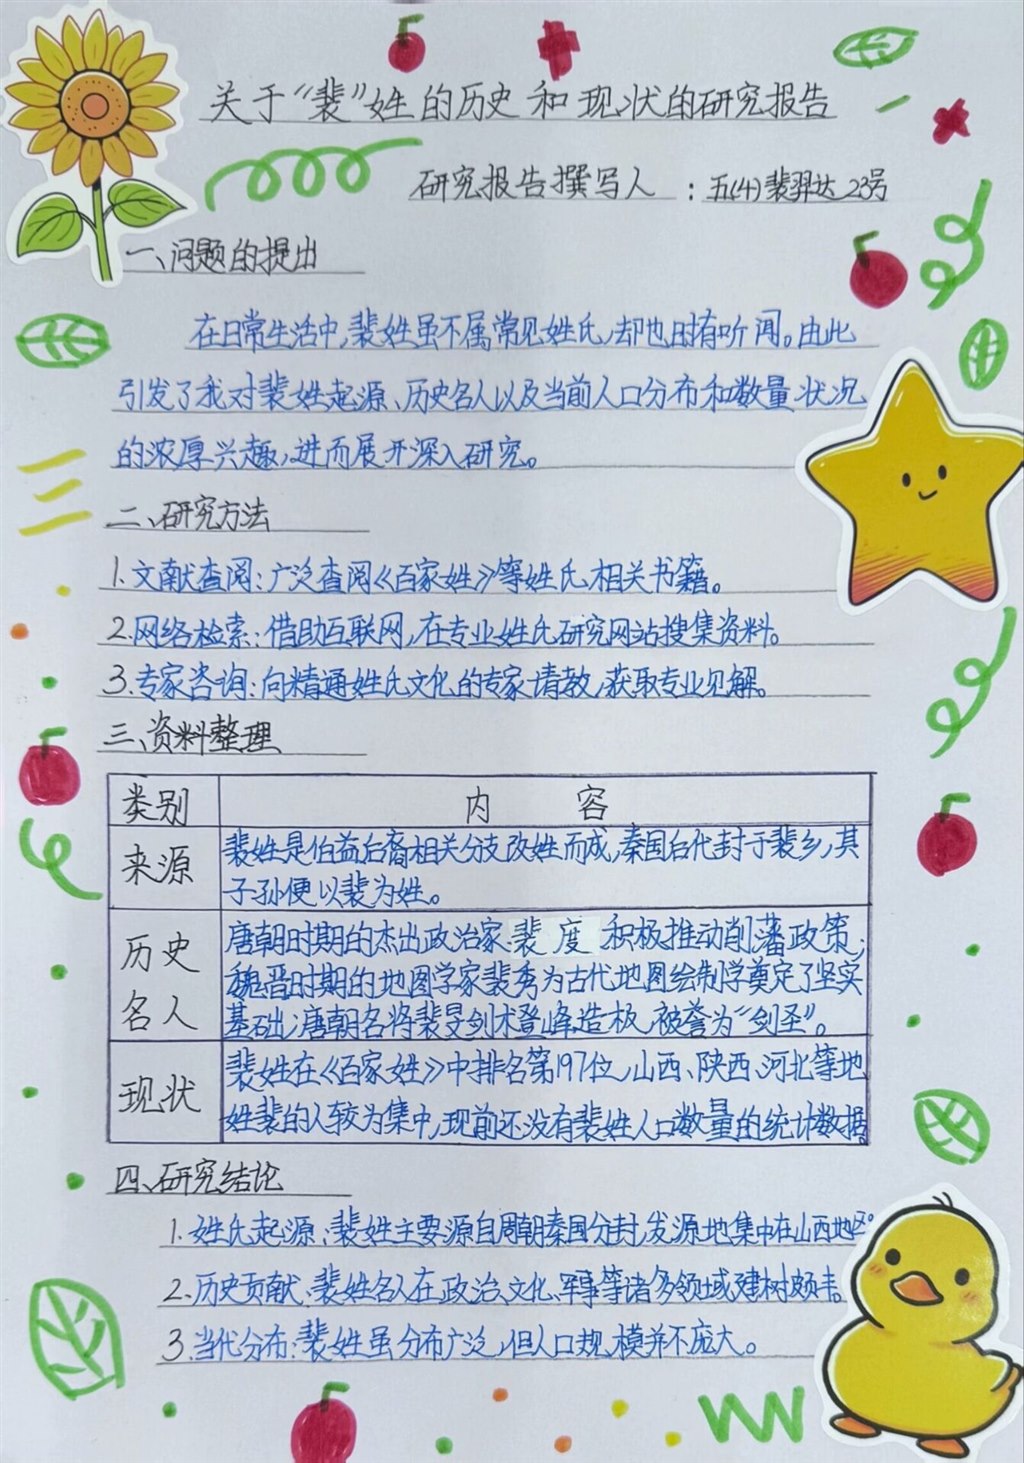 关于“裴”姓的历史和现状的研究报告
研究报告撰写人：五(4)裴羿达 23号
一、问题的提出
在日常生活中，裴姓虽不属常见姓氏，却也时有听闻。由此
引发了我对裴姓起源、历史名人以及当前人口分布和数量状况
的浓厚兴趣，进而展开深入研究。
二、研究方法
1.文献查阅：广泛查阅《百家姓》等姓氏相关书籍。
2.网络检索：借助互联网，在专业姓氏研究网站搜集资料。
3.专家咨询：向精通姓氏文化的专家请教，获取专业见解。
三、资料整理
类别 内 容
来源
裴姓是伯益后裔相关分支改姓而成，秦国后代封于裴乡，其
子孙便以裴为姓。
历史
名人
唐朝时期的杰出政治家、裴度 积极推动削藩政策；
魏晋时期的地图学家裴秀为古代地图绘制学奠定了坚实
基础；唐朝名将裴旻剑术登峰造极，被誉为“剑圣”。
现状
裴姓在《百家姓》中排名第197位，山西、陕西、河北等地
姓裴的人较为集中，现前还没有裴姓人口数量的统计数据。
四、研究结论
1.姓氏起源、裴姓主要源自周朝秦国分封，发源地集中在山西地区。
2.历史贡献、裴姓名人在政治、文化、军事等诸多领域建树颇丰。
3.当代分布：裴姓虽分布广泛，但人口规模并不庞大。